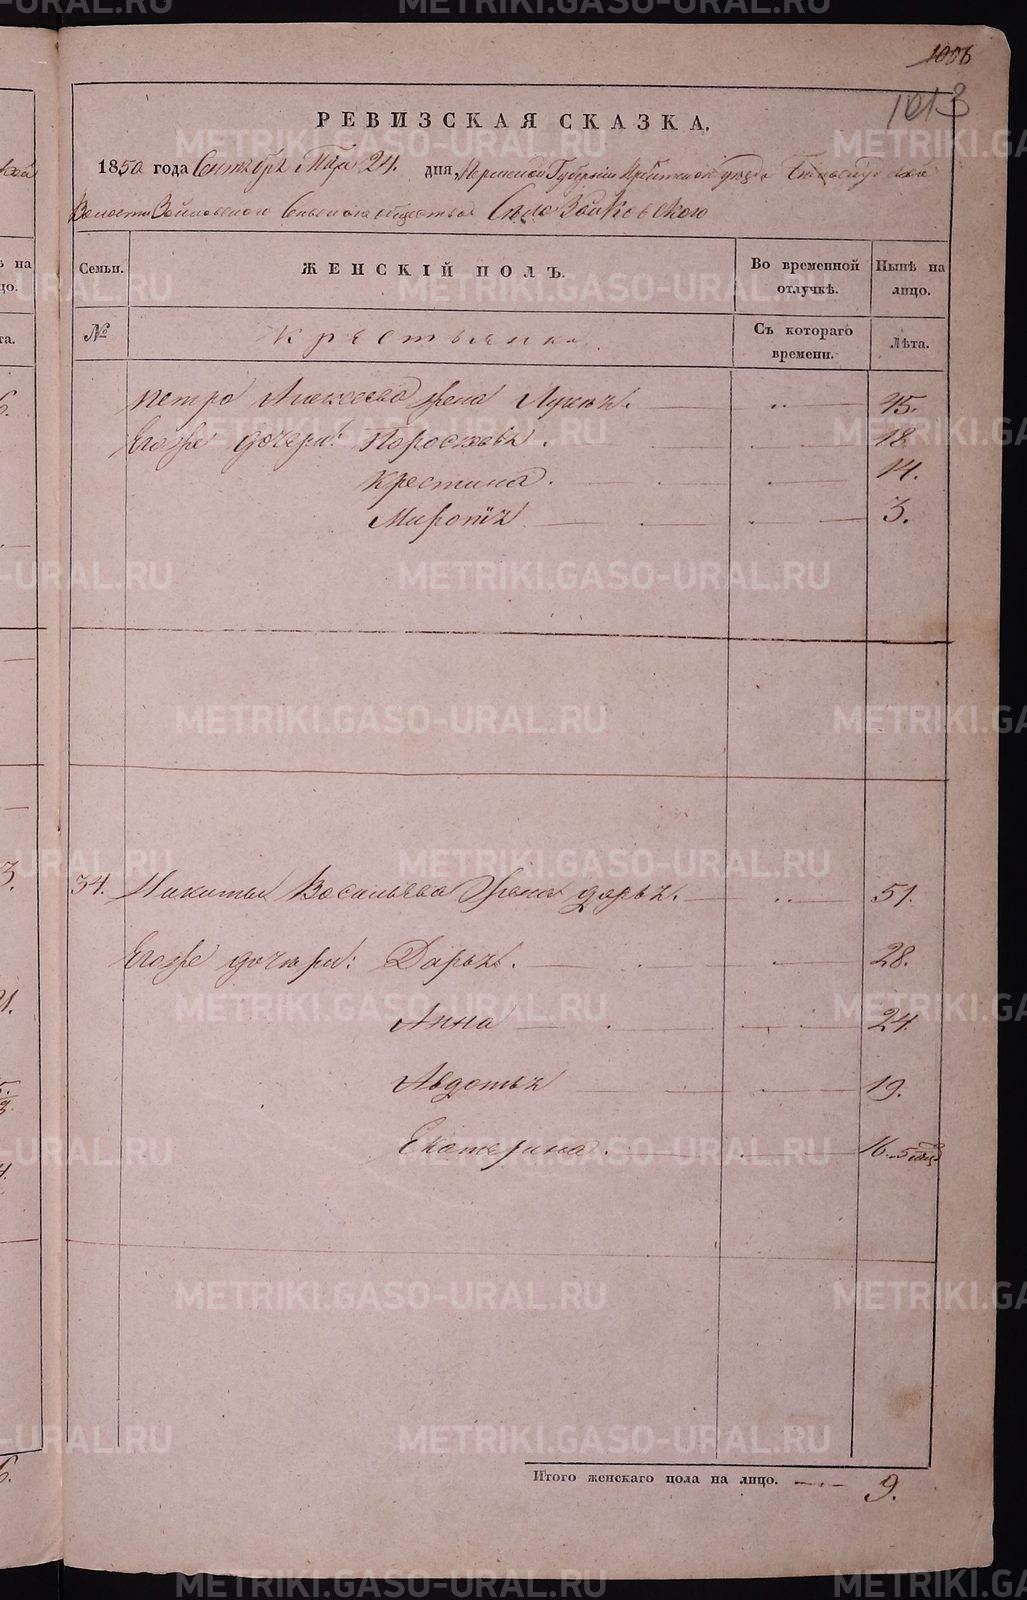 1006
1013
РЕВИЗСКАЯ СКАЗКА,
1850 года Сентября 24. дня, Пермской Губернии Ирбитского уезда
Волости Зайковского Сельского общества Село Зайковского
Семьи.
ЖЕНСКІЙ ПОЛЪ.
Во временной отлучкѣ.
Нынѣ на лицо.
№
Крестьянки
Съ котораго времени.
Лѣта.
Петра Алексеева жена 45.
Егоже дочери: Поросковья. 18.
Крестина. 14.
3.
34. Никиты Васильева жена дарья. 51.
Егоже дочери: Дарья. 28.
Анна 24
Авдотья 19.
Екатерина. 16.
Итого женскаго пола на лицо. 9.
METRIKI.GASO-URAL.RU